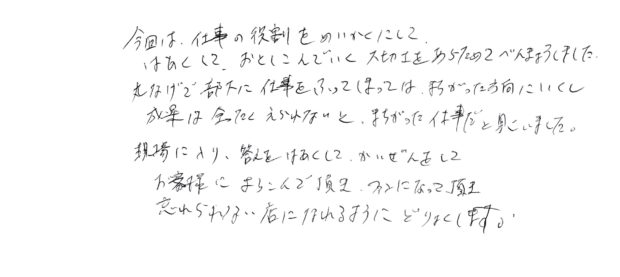 今回は、仕事の役割をめいかくにして、
はあくして、おとしこんでいく大切さをあらためてべんきょうしました。
丸なげで部下に仕事をふってしまっては、まちがった方向にいくし
成果は全たくえられないと、まちがった仕事だと思いました。
現場に入り、答えをはあくして、かいぜんをして
お客様によろこんで頂き、ファンになって頂き
忘れられない店になれるようにどりょくします。